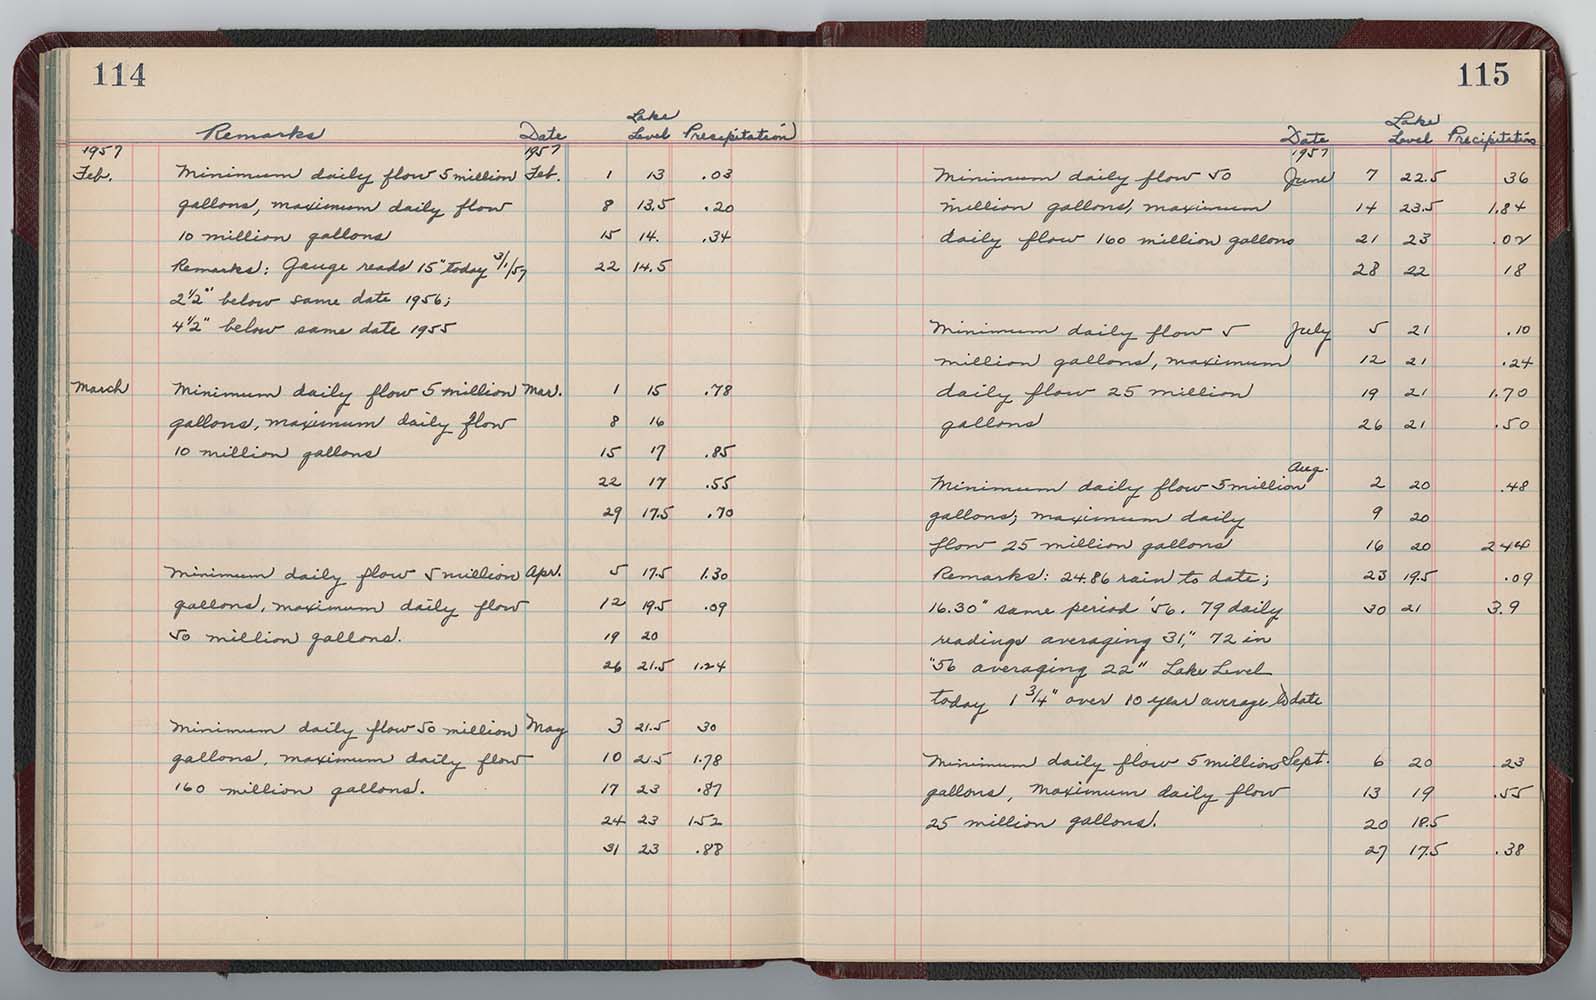 114
Remarks Date Lake Level Precipitation
1957 1957
Feb. Minimum daily flow 5 million Feb. 1 13 .03
gallons, maximum daily flow 8 13.5 .20
10 million gallons 15 14. .34
Remarks: Gauge reads 15" today 3/1/57 22 14.5
2 1/2" below same date 1956;
4 1/2" below same date 1955
March Minimum daily flow 5 million Mar. 1 15 .78
gallons, maximum daily flow 8 16
10 million gallons 15 17 .85
22 17 .55
29 17.5 .70
Minimum daily flow 5 million Apr. 5 17.5 1.30
gallons, maximum daily flow 12 19.5 .09
50 million gallons. 19 20
26 21.5 1.24
Minimum daily flow 50 million May 3 21.5 30
gallons, maximum daily flow 10 21.5 1.78
160 million gallons. 17 23 .87
24 23 1.52
31 23 .88
115
Date Lake Level Precipitation
1957
Minimum daily flow 50 June 7 22.5 36
million gallons, maximum 14 23.5 1.84
daily flow 160 million gallons 21 23 .02
28 22 18
Minimum daily flow 5 July 5 21 .10
million gallons, maximum 12 21 .24
daily flow 25 million 19 21 1.70
gallons 26 21 .50
Minimum daily flow 5 million Aug. 2 20 .48
gallons; maximum daily 9 20
flow 25 million gallons 16 20
Remarks: 24.86 rain to date; 23 19.5 .09
16.30" same period '56. 79 daily 30 21 3.9
readings averaging 31", 72 in
"56 averaging 22" Lake Level
today 1 3/4" over 10 year average to date
Minimum daily flow 5 million Sept. 6 20 .23
gallons, maximum daily flow 13 19 .55
25 million gallons. 20 18.5
27 17.5 .38